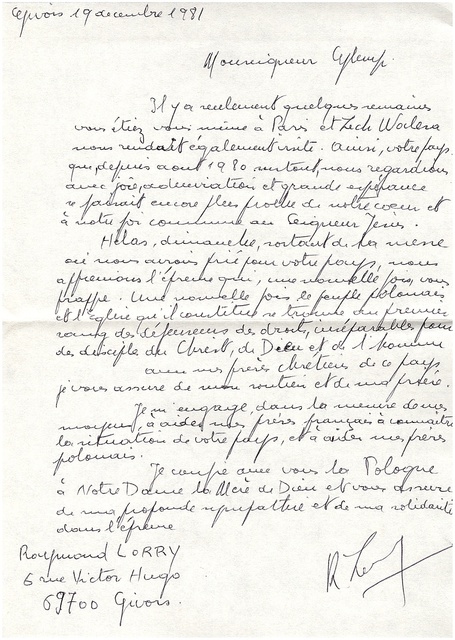 Givors 19 decembre 1981
Monseigneur Glemp.
Il y a seulement quelques semaines
vous étiez vous même à Paris et Lech Walesa
nous rendait également visite. Ainsi, votre pays
que, depuis aout 1980 surtout, nous regardions
avec joie, admiration et grande espérance
se faisait encore plus proche de notre cœur et
à notre foi commune au Seigneur Jésus.
Hélas, dimanche, sortant de la messe
où nous avions prié pour votre pays, nous
apprenions l'épreuve qui, une nouvelle fois, vous
frappe. Une nouvelle fois le peuple polonais
et l'église qu'il constitue se trouve au premier
rang des défenseurs des droits, inséparables pour
les disciples du Christ, de Dieu et de l'homme
avec mes frères chrétiens de ce pays
je vous assure de mon soutien et de ma prière.
Je m'engage, dans la mesure de mes
moyens, à aider mes frères français à connaître
la situation de votre pays, et à aider mes frères
polonais.
Je confie avec vous la Pologne
à Notre Dame la Mère de Dieu et vous assure
de ma profonde sympathie et de ma solidarité
dans l'épreuve
Raymond LORRY
6 rue Victor Hugo
69700 Givors.